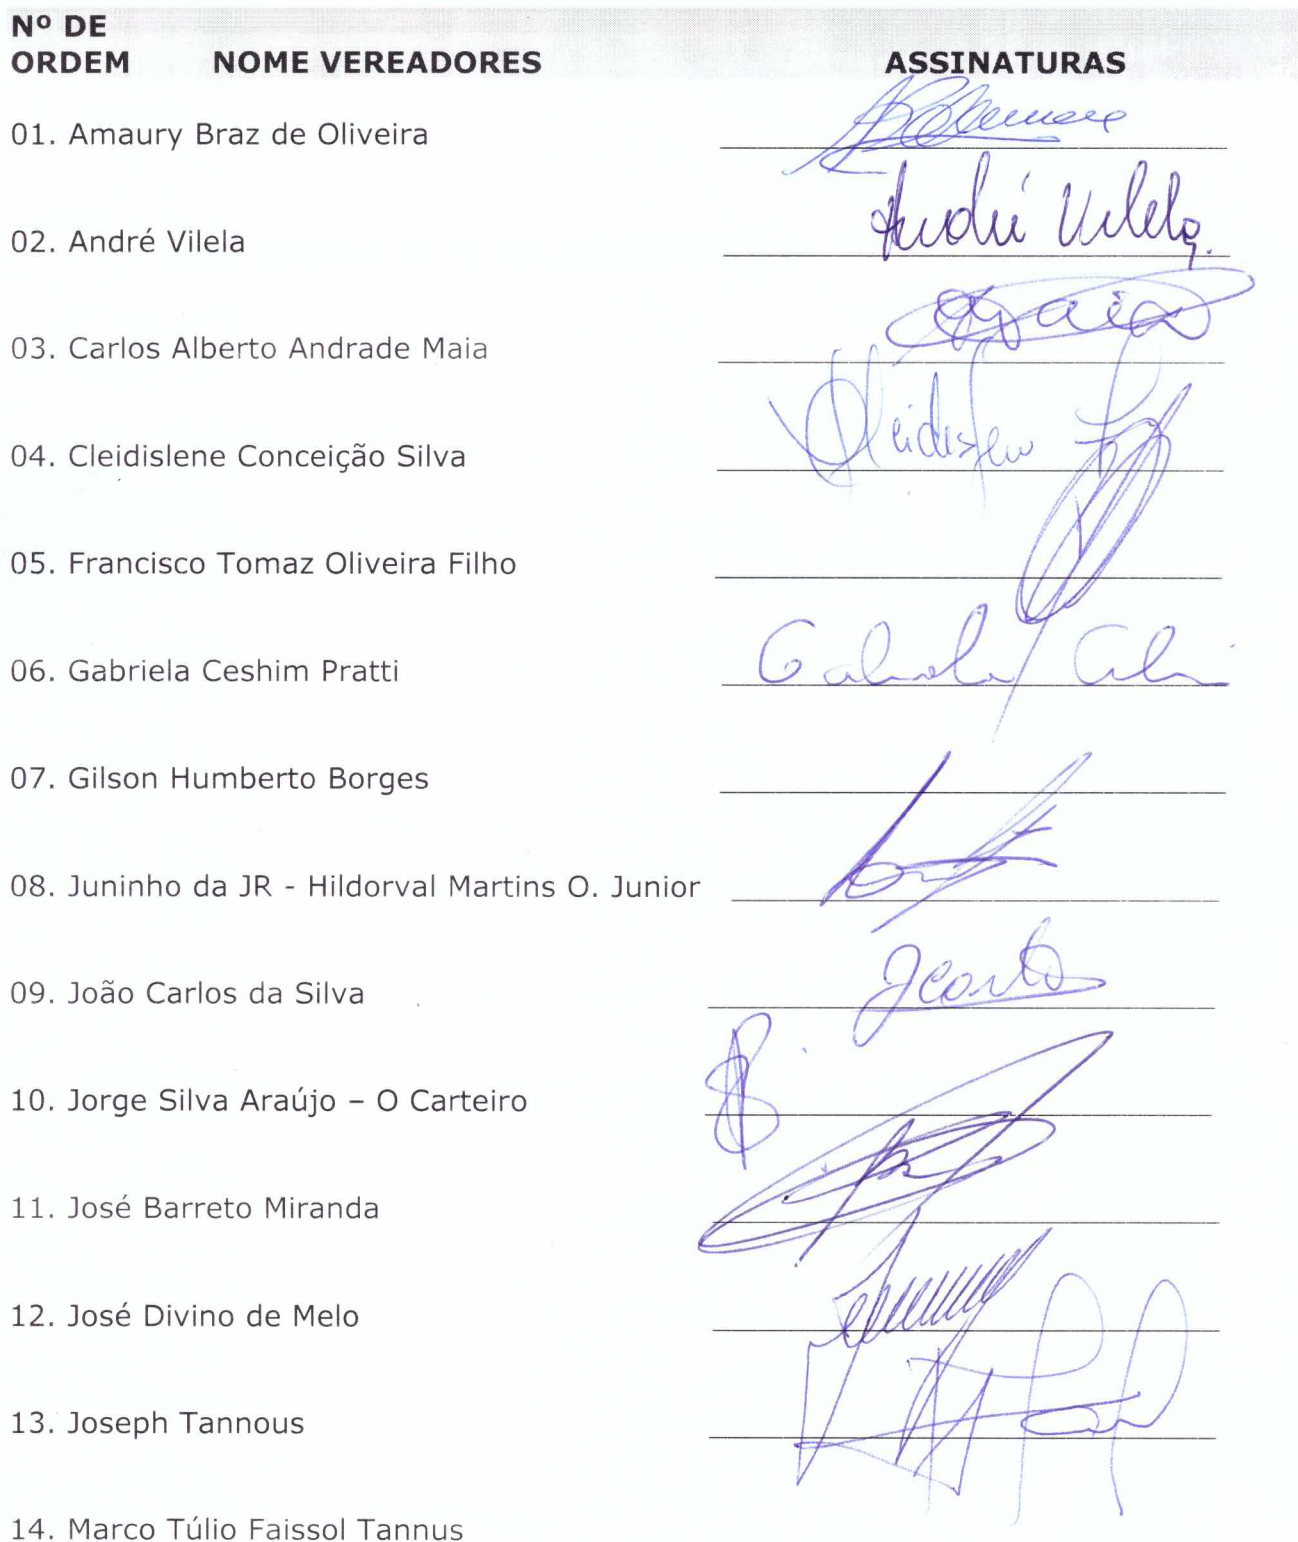 Nº DE
ORDEM NOME VEREADORES ASSINATURAS
01. Amaury Braz de Oliveira
02. André Vilela André Vilela
03. Carlos Alberto Andrade Maia
04. Cleidislene Conceição Silva
05. Francisco Tomaz Oliveira Filho
06. Gabriela Ceshim Pratti Gabriela
07. Gilson Humberto Borges
08. Juninho da JR - Hildorval Martins O. Junior
09. João Carlos da Silva
10. Jorge Silva Araújo – O Carteiro
11. José Barreto Miranda
12. José Divino de Melo
13. Joseph Tannous
14. Marco Túlio Faissol Tannus